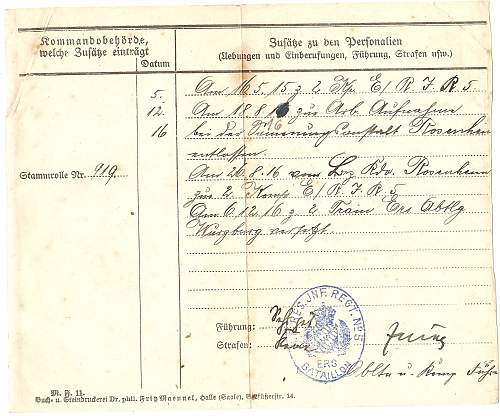 Kommandobehörde,
welche Zusätze einträgt
Datum
Zusätze zu den Personalien
(Uebungen und Einberufungen, Führung, Strafen usw.)
5.
12.
16
Am 16.5.15 z. 2. Kp. E/R.I.R 5
Am 18.8.16 zur Arb. Aufnahme
bei der Rosenheim
entlassen.
Am 26.8.16 vom Bez. Kdo. Rosenheim
zur 2. Komp E/R.I.R.5
Am 6.12.16 z. 2 Train Ers Abtlg
Würzburg versetzt.
Stammrolle Nr. 919.
Führung: Sehr gut
Strafen: Keine
RES. JNF. REGT. No 5
ERS.
BATAILLON
Obltn u. Komp Führ
M. F. 11.
Buch- u. Steindruckerei Dr. phil. Fritz Maennel, Halle (Saale), Gr. Steinstr. 14.